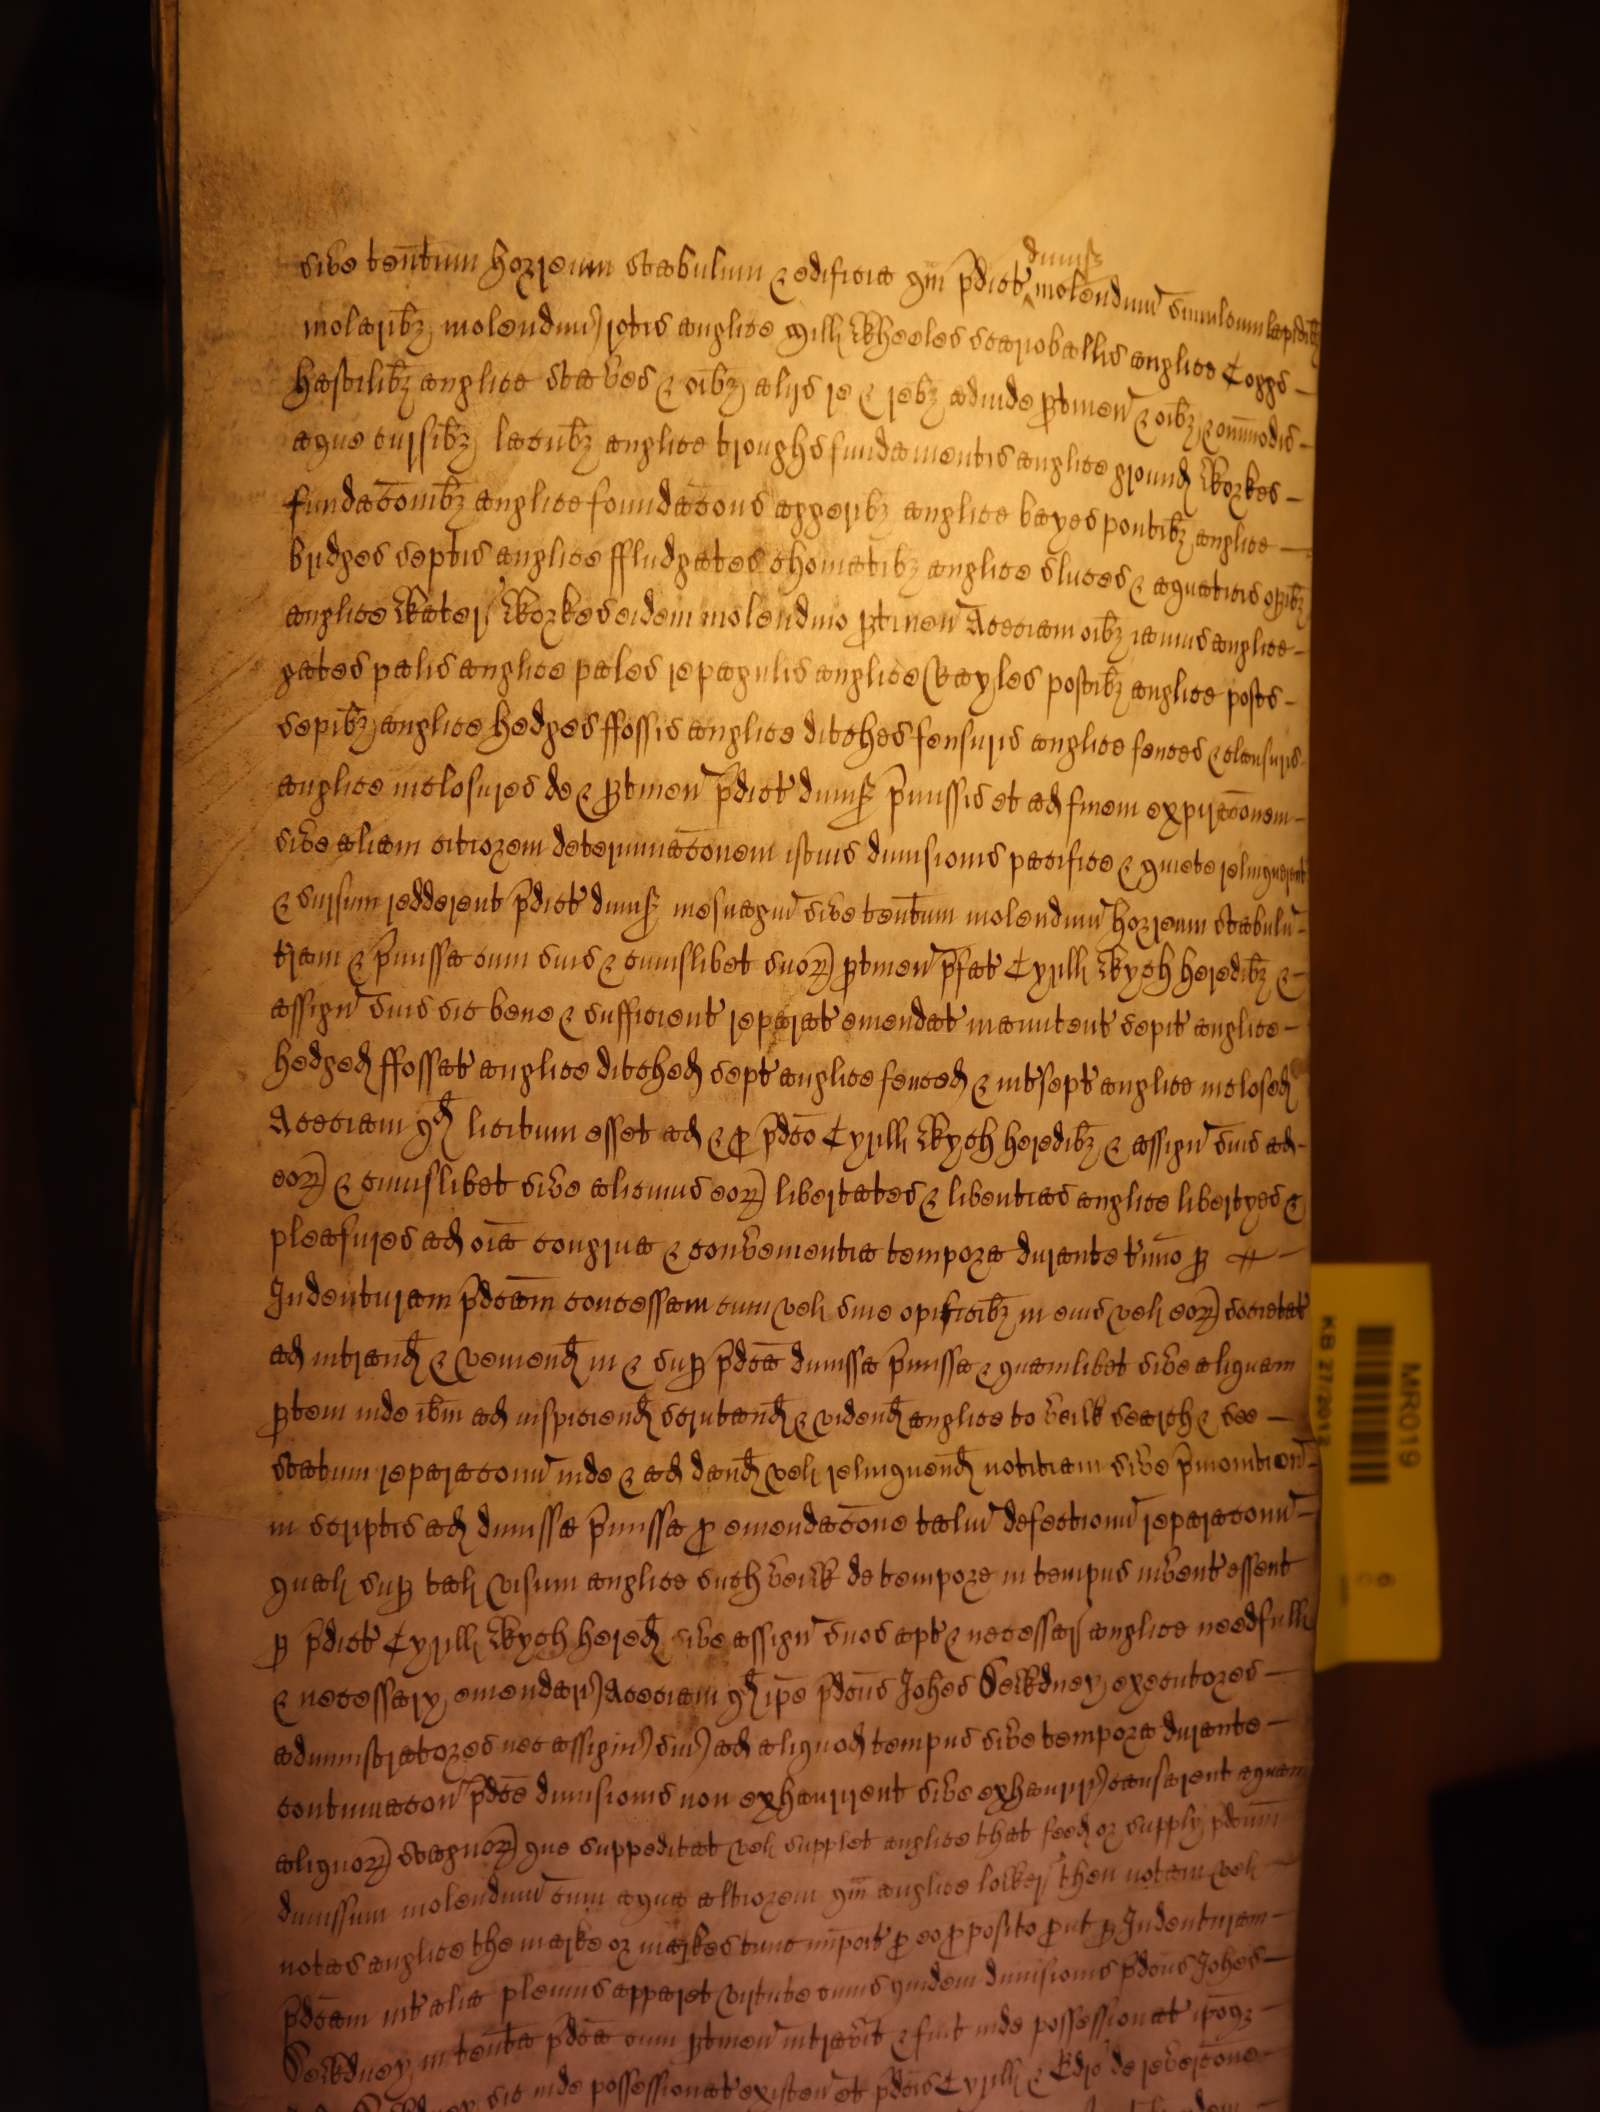 sive teñtum horreum stabulum & edificia qm̃ p̃dict ^dimiss^ molendinũ simulcum lapidibȝ
molaribȝ molendini rotis anglice Mill Wheeles scarioballis anglice Coggs
hastilibȝ anglice staves & oĩbȝ alijs re & rebȝ adinde ptinen̄ & oĩbȝ com̄odis
aque cursibȝ lacubȝ anglice troughs fundamentis anglice ground workes
fundac̃onibȝ anglice foundac̃ons aggeribȝ anglice bayes pontibȝ anglice
bridges septis anglice ffludgates chomatibȝ anglice sluces & aquaticis opibȝ
anglice Water Workes eidem molendino ptinen̄ Aceciam oĩbȝ ianuis anglice
gates palis anglice pales repagulis anglice Rayles postibȝ anglice posts
sepibȝ anglice hedges ffossis anglice ditches fensuris anglice fences & clausuris
anglice inclosures de & ptinen̄ p̃dict dimiss p̃missis et ad finem expirac̃onem
sive aliam citiorem determinac̃onem istius dimisionis pacifice & quiete relinquerent
& sursum redderent p̃dict dimiss mesuagiũ sive teñtum molendinũ horreum stabulũ
tram & p̃missa cum suis & cuiuslibet suor ptinen̄ p̃fat Cyrill Wych heredibȝ &
assign̄ suis sic bene & sufficient reparat emendat manutent sepit anglice
hedged ffossat anglice ditched sept anglice fenced & intsept anglice inclosed
Aceciam qd licitum esset ad & p p̃dc̃o Cyrill Wych heredibȝ & assign̄ suis ad
eor & cuiuslibet sive alicuius eor libertates & libentias anglice libertyes &
pleasures ad oĩa congrua & convenientia tempora durante t̃mino p
Indenturam p̃dc̃am concessam cum vel sine opificibȝ in eius vel eor societat
ad intrand & veniend in & sup p̃dc̃a dimissa p̃missa & quamlibet sive aliquam
ptem inde ibm̃ ad inspiciend scrutand & vidend anglice to veiw search & see
statum reparac̃onũ inde & ad dand vel relinquend notitiam sive p̃monition̄
in scriptis ad dimissa p̃missa p emendac̃one taliũ defectionũ reparac̃onũ
qual sup tal visum anglice such veiw de tempore in tempus invent essent
p p̃dict Cyrill Wych hered sive assign̄ suos apt & necessar anglice needfull
& necessary emendari Aceciam qd ip̃e p̃dc̃us Joh̃es Sewdney executores
administratores nec assign sui ad aliquod tempus sive tempora durante
continuac̃on̄ p̃dc̃e dimisionis non exhaurirent sive exhauriri causarent aquam
aliquor stagnor que suppeditat vel supplet anglice that feed or supply p̃dc̃um
dimissum molendinũ cum aqua altiorem qm̃ anglice lower then notam vel
notas anglice the marke or markes tunc imposit p eo pposito put p Indenturam
p̃dc̃am int alia plenius apparet virtute cuius quidem dimisionis p̃dc̃us Joh̃es
Sewdney in teñta p̃dc̃a cum ptinen̄ intravit & fuit inde possessionat ip̃oqȝ
sic inde possessionat existen̄ et p̃dc̃is Cyrill & de reverc̃one
MR019
KB 27/2012